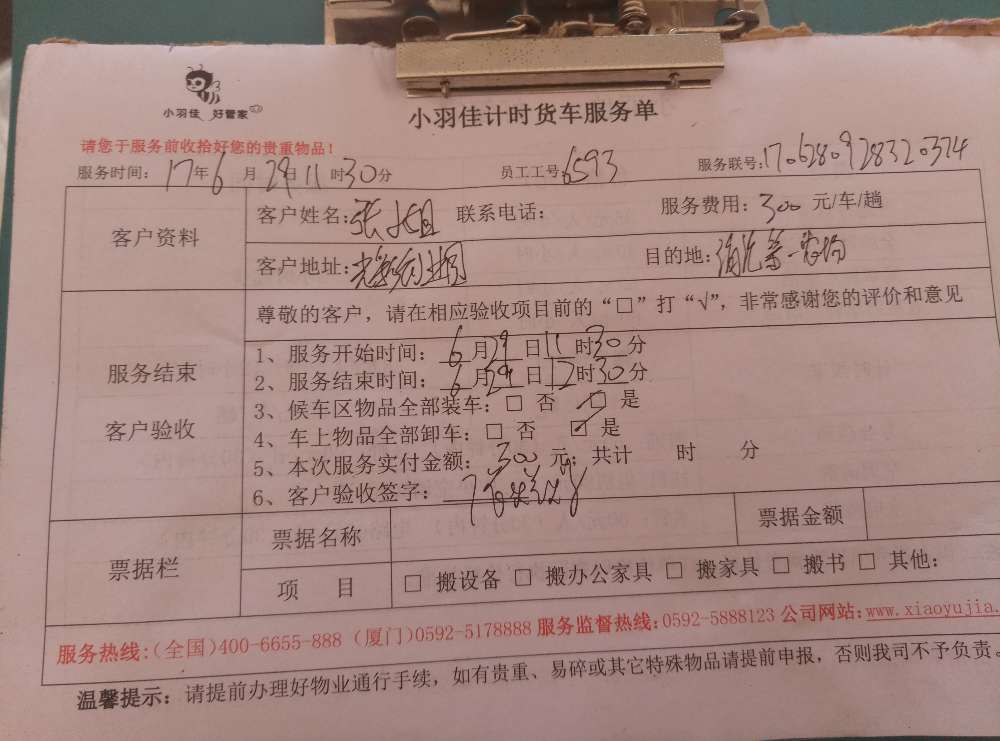 小羽佳 好管家
小羽佳计时货车服务单
请您于服务前收拾好您的贵重物品!
服务时间: 17年6月29日11时30分 员工工号6593 服务联号:1706280928320374
客户资料
客户姓名:张小姐 联系电话: 服务费用:300 元/车/趟
客户地址: 目的地:
尊敬的客户,请在相应验收项目前的“□”打“√”,非常感谢您的评价和意见
服务结束
客户验收
1、服务开始时间:6月29日11时30分
2、服务结束时间:6月29日12时30分
3、候车区物品全部装车:□ 否 ☑ 是
4、车上物品全部卸车:□ 否 ☑ 是
5、本次服务实付金额:300元;共计 时 分
6、客户验收签字:
票据栏
票据名称 票据金额
项 目 □ 搬设备 □ 搬办公家具 □ 搬家具 □ 搬书 □ 其他:
服务热线:(全国)400-6655-888 (厦门)0592-5178888 服务监督热线:0592-5888123 公司网站:www.xiaoyujia.
温馨提示:请提前办理好物业通行手续,如有贵重、易碎或其它特殊物品请提前申报,否则我司不予负责。